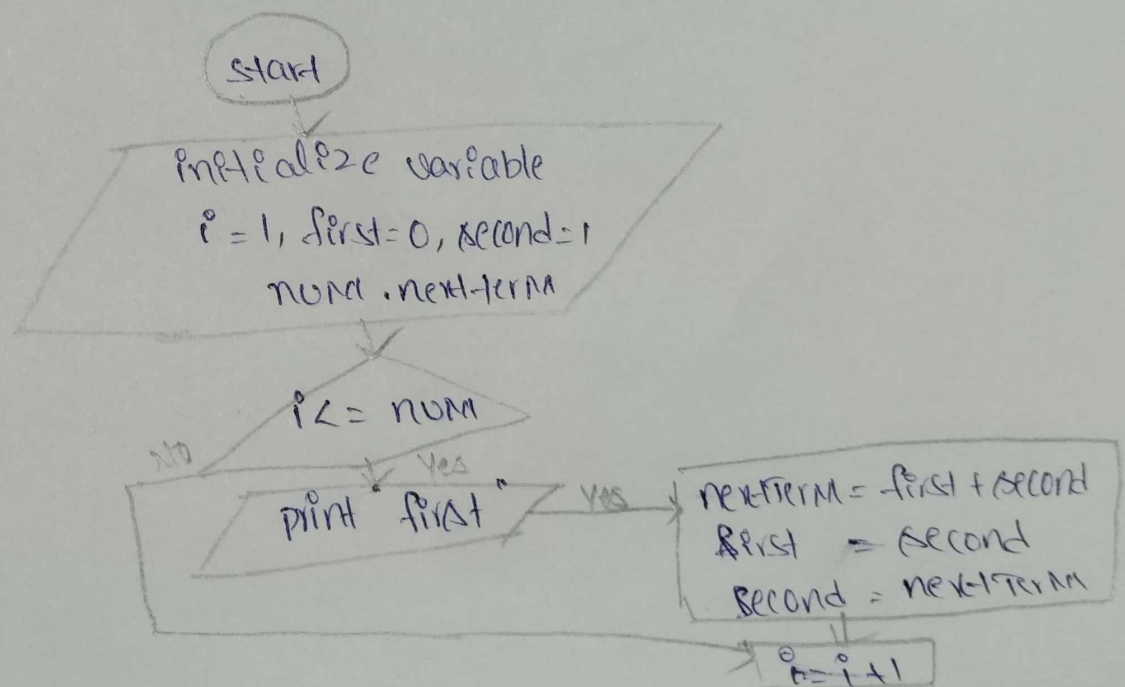 start
initialize variable
i = 1, first = 0, second = 1
num . next-term
i <= num
No
Yes
print "first"
Yes
nextTerm = first + second
first = second
second = nextTerm
i = i + 1